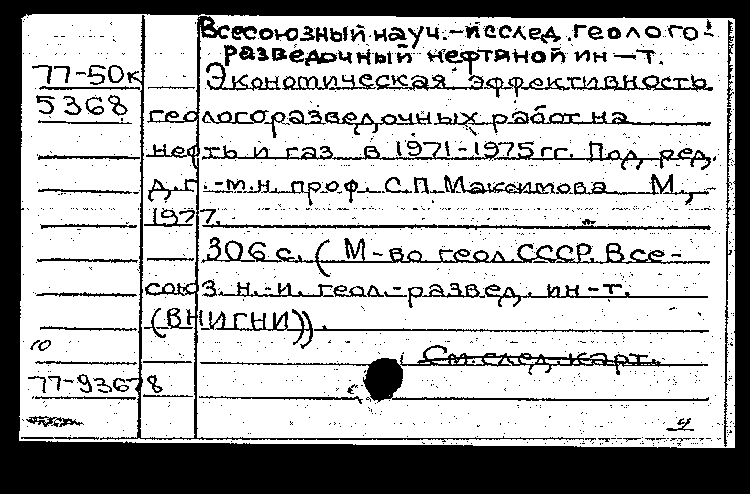 Всесоюзный науч.-исслед. геолого-
разведочный нефтяной ин-т.
77-50к Экономическая эффективность
5368 геологоразведочных работ на
нефть и газ в 1971-1975 гг. Под ред.
д.г.-м.н. проф. С.П. Максимова М.,
1977.
306 с. (М-во геол. СССР. Все-
союз. н.-и. геол.-развед. ин-т.
(ВНИГНИ)).
10
См. след. карт.
77-93678
4